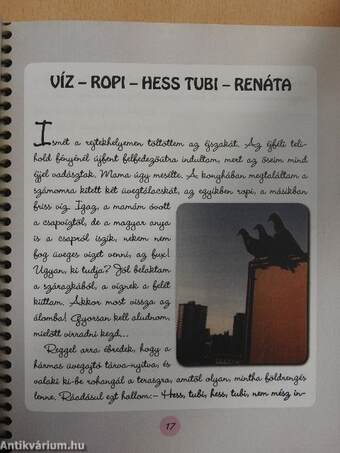 VÍZ – ROPI – HESS TUBI – RENÁTA
Ismét a rejtekhelyemen töltöttem az éjszakát. Az éjféli teli-
hold fényénél újfent felfedezőútra indultam, mert az őseim mind
éjjel vadásztak. Mama úgy mesélte. A konyhában megtaláltam a
számomra kitett két üvegtálacskát, az egyikben ropi, a másikban
friss víz. Igaz, a mamám óvott
a csapvíztől, de a magyar anya
is a csapról iszik, nekem nem
fog üveges vizet venni, az fux!
Ugyan, ki tudja? Jól belaktam
a szárazkából, a víznek a felét
kiittam. Akkor most vissza az
álomba! Gyorsan kell aludnom,
mielőtt virradni kezd...
Reggel arra ébredek, hogy a
hármas üvegajtó tárva-nyitva, és
valaki ki-be rohangál a teraszra, amitől olyan, mintha földrengés
lenne. Ráadásul ezt hallom:– Hess, tubi, hess, tubi, nem mész in-
17
Antikvárium.hu